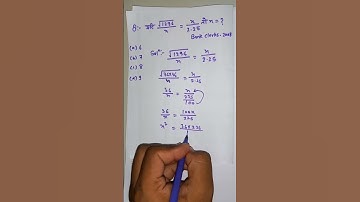 Q:- यदि √1296/n = n/2.25 तो n = ?
Bank clerks - 2009
(A) 6
(B) 7
(C) 8
(D) 9
Sol:- √1296/n = n/2.25
√36×36/n = n/2.25
36/n = n/225/100
36/n = 100n/225
n² = 36×225